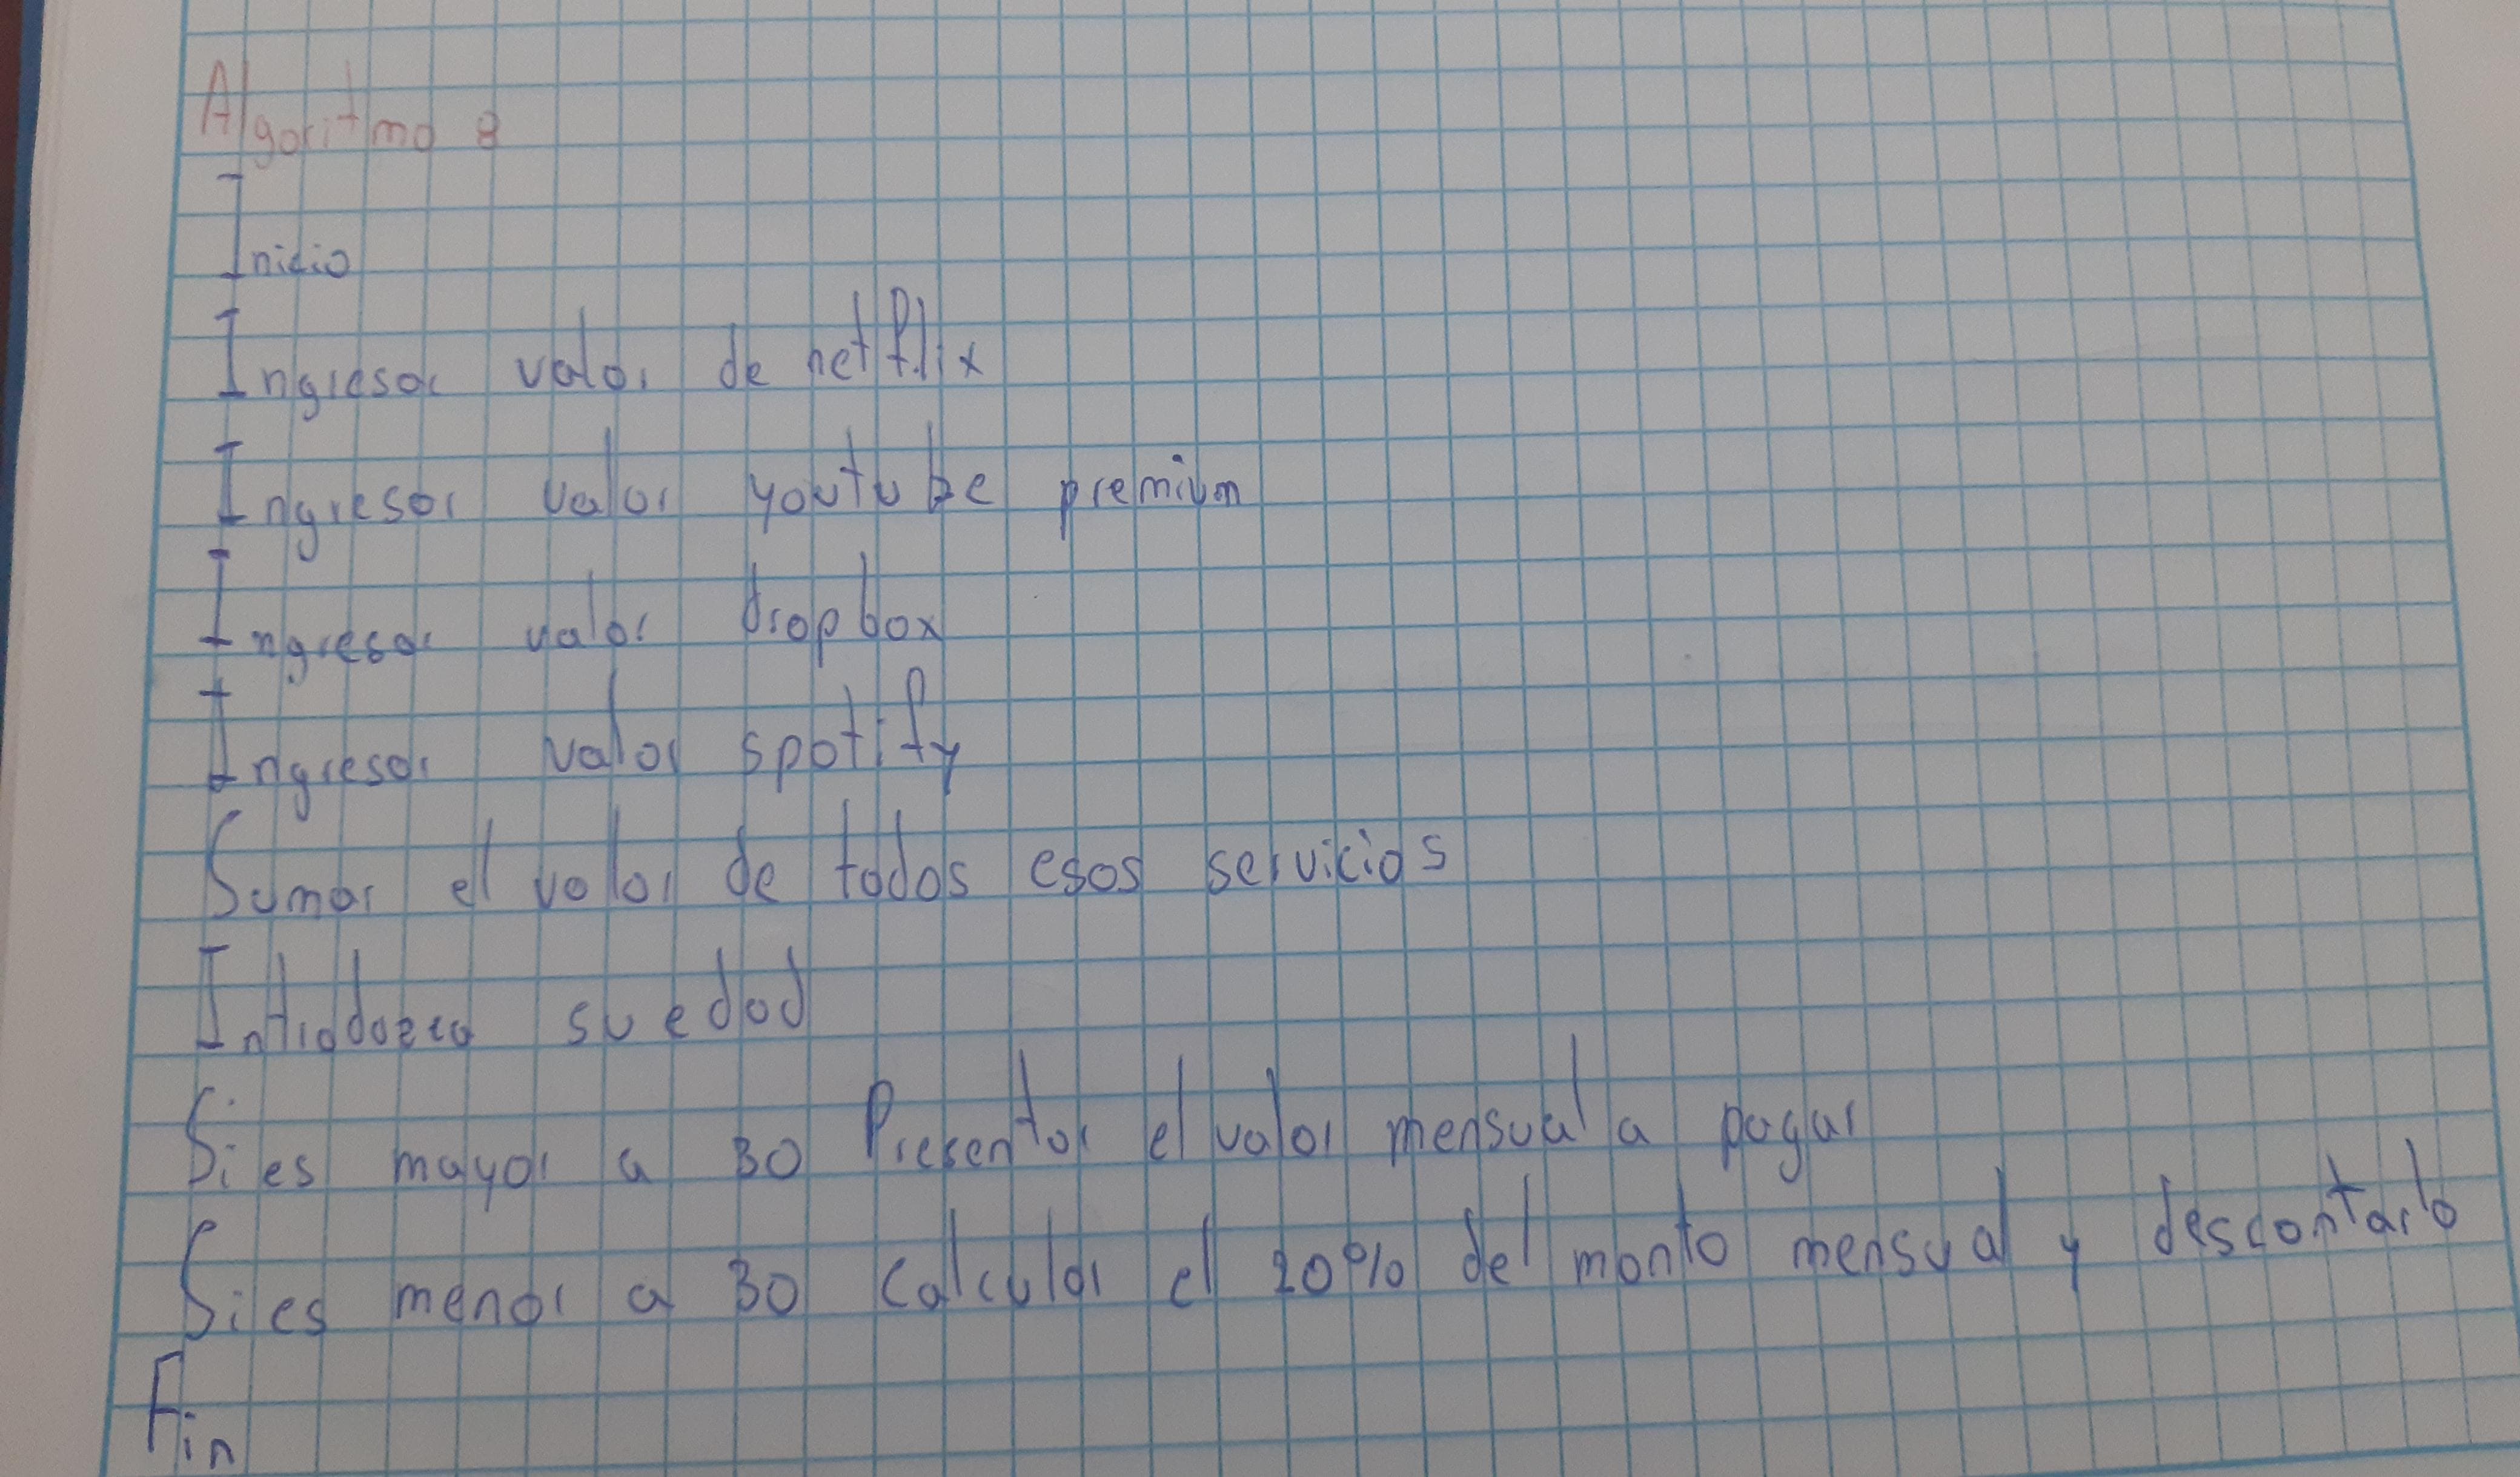 Algoritmo 8
Inicio
Ingresar valor de netflix
Ingresar valor youtube premium
Ingresar valor dropbox
Ingresar valor spotify
Sumar el valor de todos esos servicios
Introdozca su edad
Si es mayor a 30 Presentar el valor mensual a pagar
Si es menor a 30 Calcular el 20% del monto mensual y descontarlo
Fin